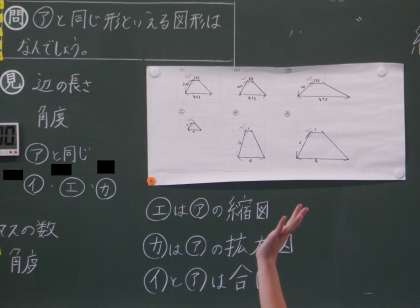 問 アと同じ形といえる図形は
なんでしょう。
見 辺の長さ
角度
アと同じ
イ・エ・カ
マスの数
角度
エはアの縮図
カはアの拡大図
イとアは合